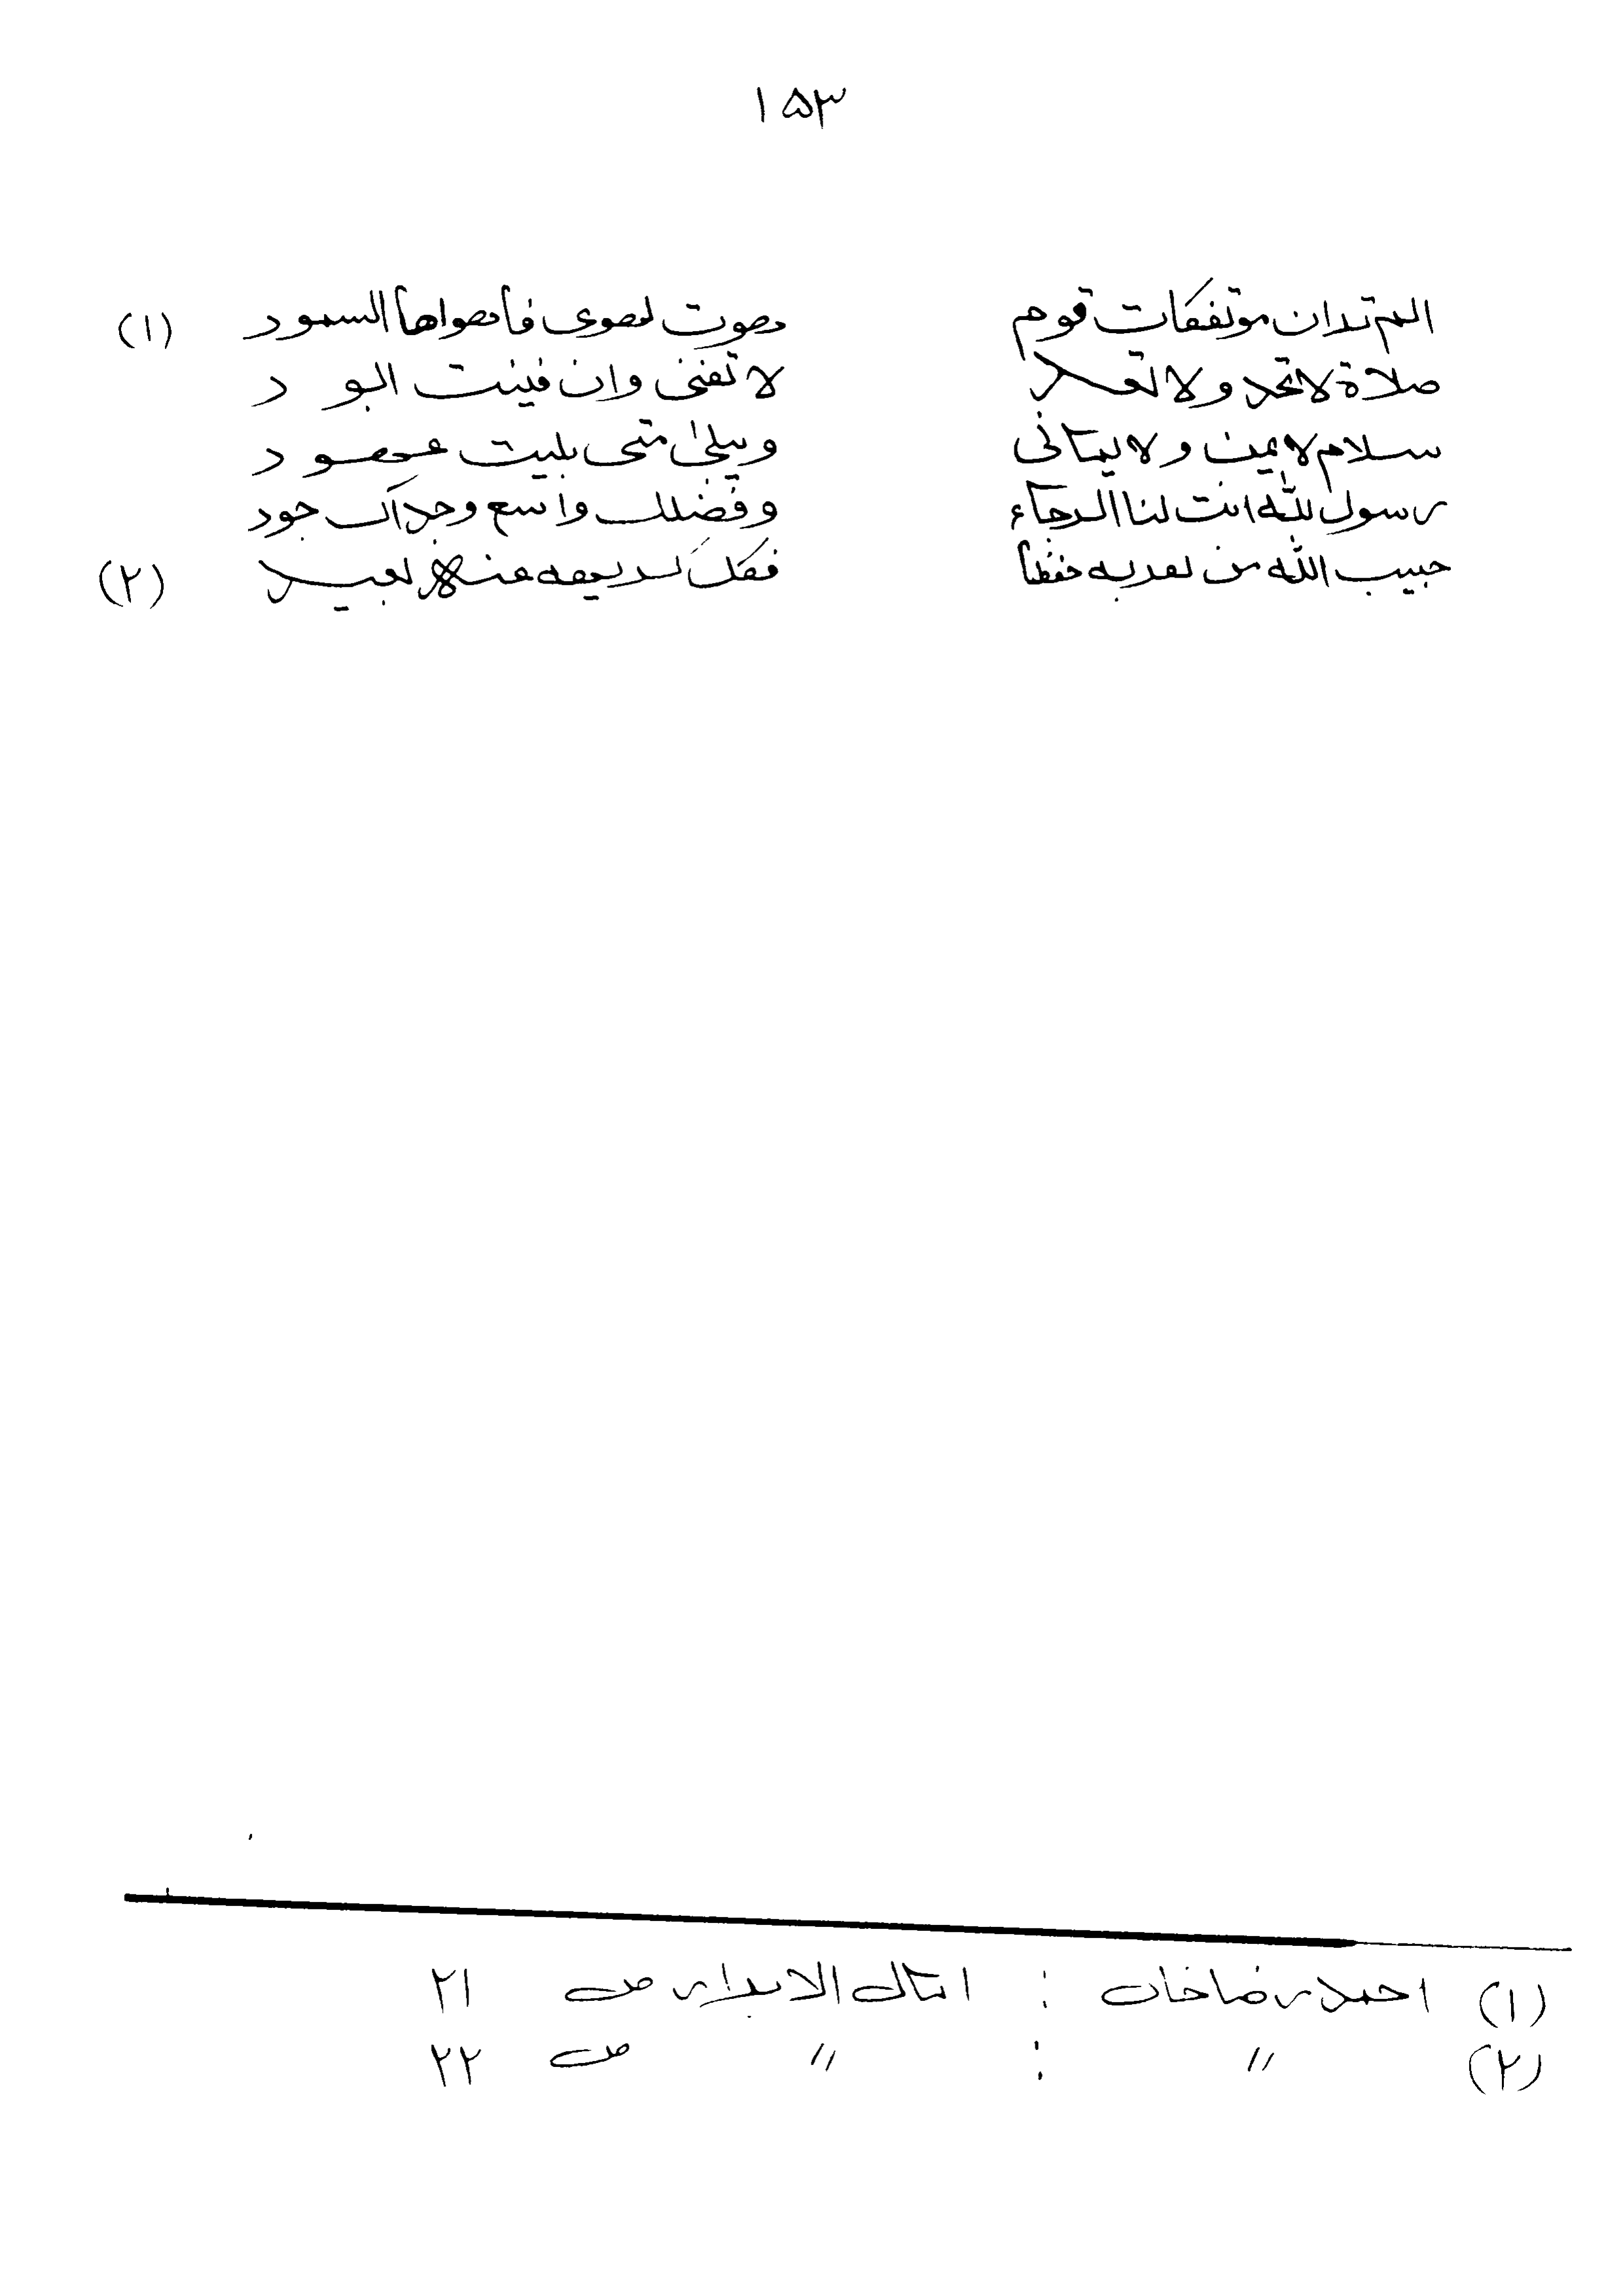 ۱۵۳
الم تر ان موتفكات قوم هوت لهوى فاهواها السمود (۱)
صلاة لا تحد ولا تعد لا تفنى وان فنيت ابود
سلام لا يمن ولا يمانى ويبلى متى بليت عهود
رسول الله انت لنا الرجاء وفضلك واسع وجداك جود
حبيب الله من تقربه حفظا فكل عنه بعيد (۲)
(۱) احمد رضا خان : امال الابرار ص ۲۱
(۲) // : // ص ۲۲